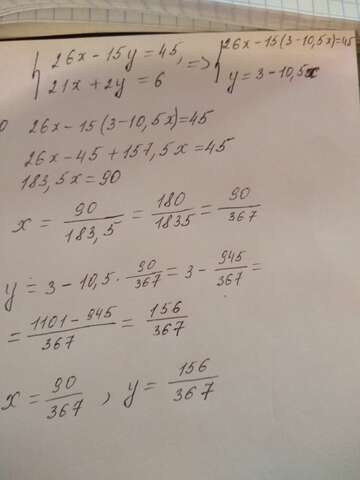 {26x - 15y = 45, => {26x - 15(3 - 10,5x) = 45
{21x + 2y = 6 {y = 3 - 10,5x
26x - 15(3 - 10,5x) = 45
26x - 45 + 157,5x = 45
183,5x = 90
x = 90/183,5 = 180/1835 = 90/367
y = 3 - 10,5 · 90/367 = 3 - 945/367 =
= 1101 - 945/367 = 156/367
x = 90/367 , y = 156/367